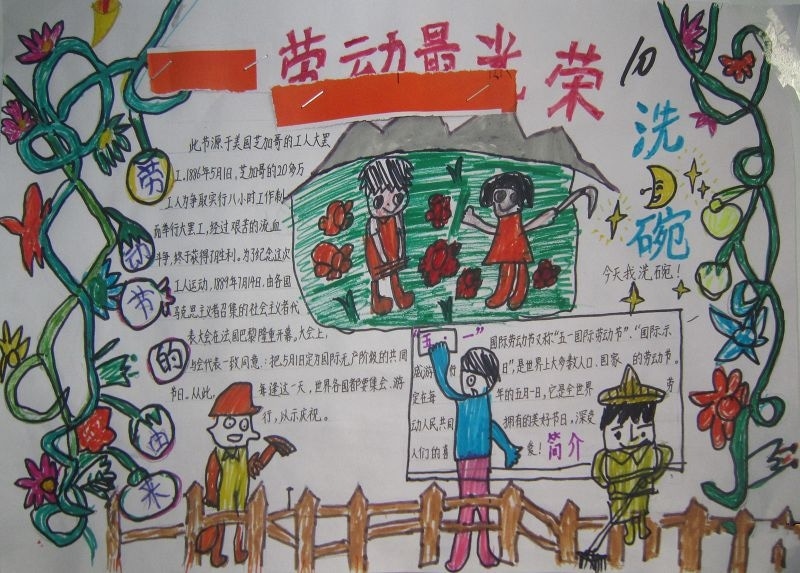 劳动最光荣
劳动节的由来
此节源于美国芝加哥的工人大罢
工.1886年5月1日,芝加哥的20多万
工人为争取实行八小时工作制
而举行大罢工,经过艰苦的流血
斗争,终于获得了胜利。为了纪念这次
工人运动,1889年7月14日,由各国
马克思主义者召集的社会主义者代
表大会在法国巴黎隆重开幕。大会上,
与会代表一致同意:把5月1日定为国际无产阶级的共同
节日。从此,每逢这一天,世界各国都要集会、游
行,以示庆祝。
洗碗
今天我洗碗!
“五·一”国际劳动节又称“五一国际劳动节”、“国际示
威游行日”,是世界上大多数人口、国家的劳动节。
定在每年的五月一日,它是全世界劳
动人民共同拥有的美好节日,深受
人们的喜爱!简介